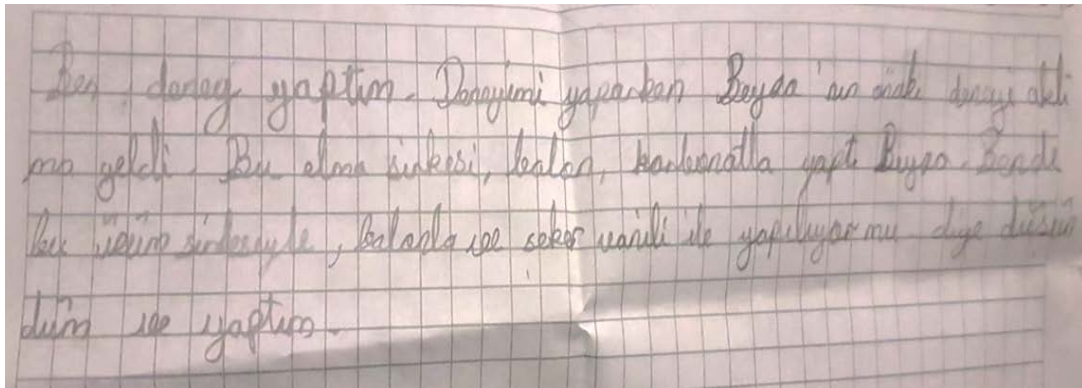 Ben deney yaptım. Deneyimi yaparken Beyza'nın önceki deneyi aklı
ma geldi. Bu elma sirkesi, balon, karbonatla yaptı Beyza. Bende
bu üzüm sirkesiyle, balonla ve şeker vanili ile yapılıyormu diye düşün
düm ve yaptım.